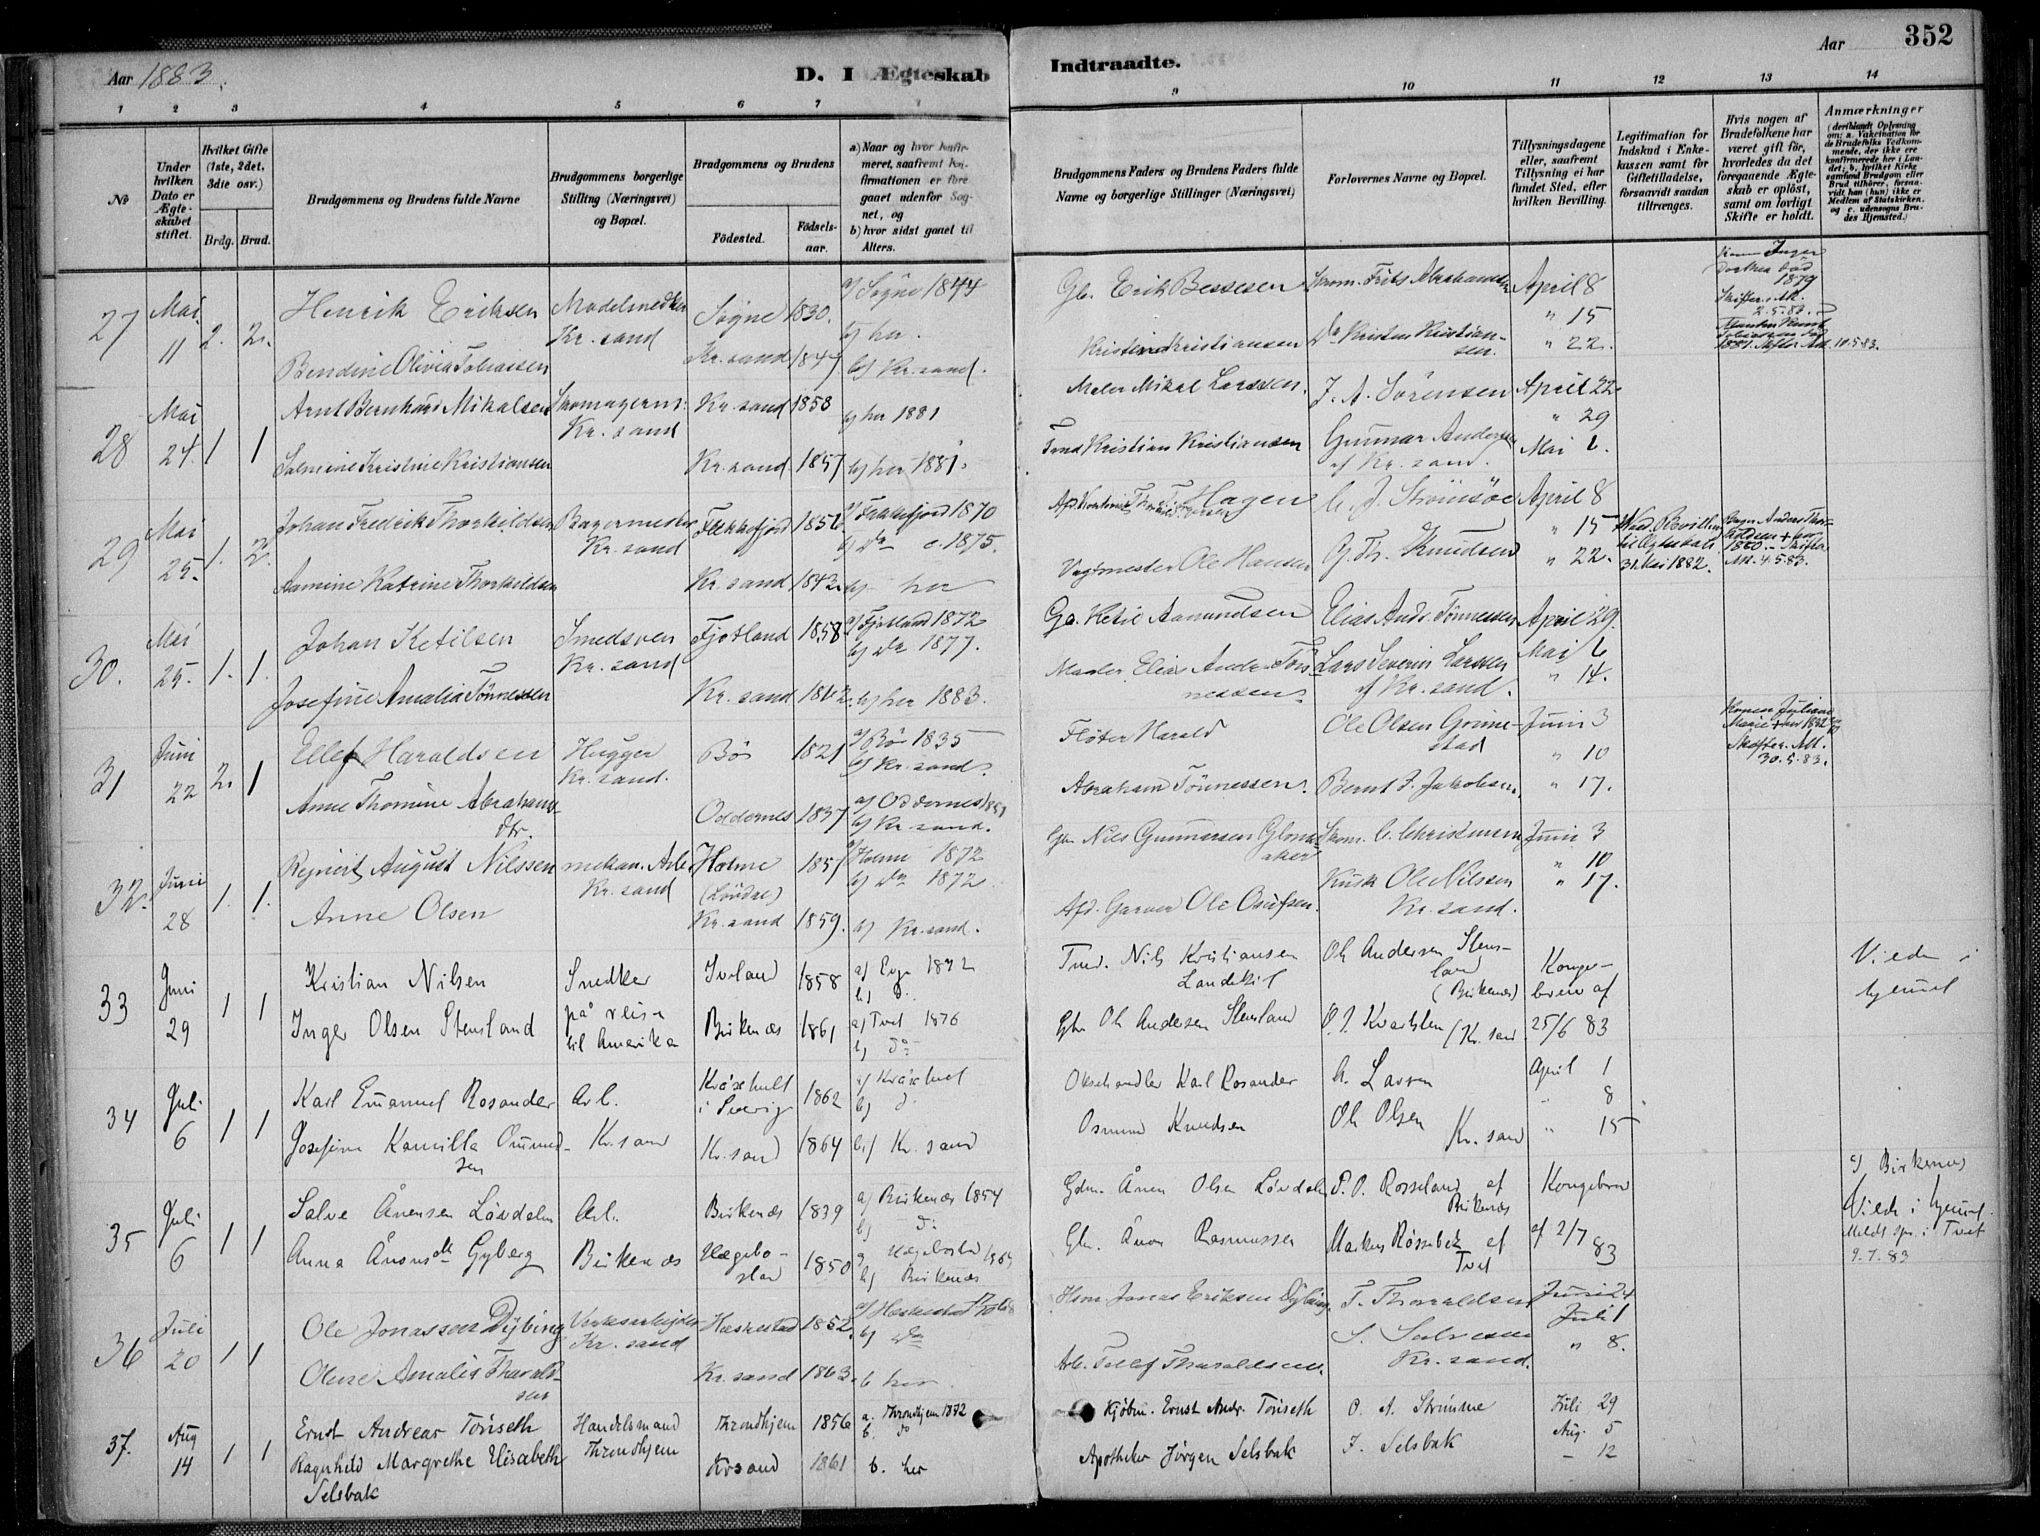 Aar 1883.
D. I Ægteskab
Indtraadte.
Aar
352
1 2 3 4 5 6 7
9 10 11 12 13 14
№
Under hvilken Dato er Ægteskabet stiftet.
Hvilket Gifte (1ste, 2det, 3die osv.)
Brdg. Brud.
Brudgommens og Brudens fulde Navne
Brudgommens borgerlige Stilling (Næringsvei) og Bopæl.
Brudgommens og Brudens
Fødested. Fødselsaar.
a) Naar og hvor konfirmeret, saafremt konfirmationen er foregaaet udenfor Sognet, og
b) hvor sidst gaaet til Alters.
Brudgommens Faders og Brudens Faders fulde Navne og borgerlige Stillinger (Næringsvei)
Forlovernes Navne og Bopæl.
Tillysningsdagene eller, saafremt Tillysning ei har fundet Sted, efter hvilken Bevilling.
Legitimation for Indskud i Enkekassen samt for Giftetilladelse, forsaavidt saadan tiltrænges.
Hvis nogen af Brudefolkene har været gift før, hvorledes da det foregaaende Ægteskab er opløst, samt om lovligt Skifte er holdt.
Anmærkninger (deriblandt Oplysning om: a. Vakcination for de Brudefolks Vedkommende, der ikke ere konfirmerede her i Landet; b. hvilket Kirkesamfund Brudgom eller Brud tilhører, forsaavidt han (hun) ikke er Medlem af Statskirken, og c. udensogns Brudes Hjemsted.)
27 Mai 11 2. 2. Henrik Eriksen Modelsnedker Kr.sand Søgne 1830. a) Søgne 1844 b) her. Gb. Erik Bessesen Skom. Frits Abrahamsen April 8
" 15
Bendine Olivia Tobiassen Kr.sand 1847 b) Kr.sand. Kristian Kristiansen Do Kristen Kristiansen. " 22.
Inger Dorthea død 1879 Skifter. Att. 2.5.83.
1881. Skifter Att. 10.5.83.
28 Mai 24. 1 1 Arnt Bernhard Mikalsen Skomagerm. Kr.sand Kr.sand 1858 b) her 1881 Maler Mikal Larssen. J. A. Sörensen April 22
" 29
Salmine Kristine Kristiansen Kr.sand 1857 b) her 1881. Tmd Kristian Kristiansen Gunnar Andersen af Kr.sand. Mai 6.
29 Mai 25. 1. 2. Johan Fredrik Thorkildsen Bagermester Kr.sand Flekkefjord a) Flekkefjord 1870 b) Do c. 1875. Hagen C. J. Strömsöe April 8
" 15
Aamine Katrine Thorkildsen Kr.sand 1842 b) her Vagtmester Ole Hansen G. Th. Knudsen " 22.
til Ægteskab 31 Mai 1882.
Bager Anders 1880. Skifte Att. 4.5.83.
30. Mai 25. 1. 1. Johan Ketilsen Smedsven Kr.sand Fjotland 1858 a) Fjotland 1872 b) Do 1877. Gb. Ketil Aamundsen Elias Andr. Tönnessen April 29.
Mai 6
Josefine Amalia Tönnessen Kr.sand 1862. b) her 1883. Maaler Elias Andr. Tönnessen. Lars Severin Larssen af Kr.sand. " 14.
31 Juni 22 2. 1 Ellef Haraldsen Hugger Kr.sand. Bö 1821 a) Bö 1835 b) Kr.sand. Flöter Harald Ole Olsen Grimestad Juni 3
" 10
Anne Thomine Abrahamsdtr. Oddernes 1837 a) Oddernes b) Kr.sand. Abraham Tönnessen. Bernt J. Jakobsen. " 17.
Konen Juliane Marie Skifter. Att. 30.5.83.
32. Juni 28 1. 1. Rejnert August Nilssen mekan. Arb. Kr.sand Holme (Lövdal) 1857 a) Holme 1872 b) Do 1872. Gbr Nils Gunnarsen Skom. C. Christensen Juni 3
" 10
Anne Olsen Kr.sand 1859. b) Kr.sand. Afd. Garver Ole Osufsen. Kusk Ole Nilssen Kr.sand. " 17.
33 Juni 29 1 1 Kristian Nilsen Snedker på reise til Amerika Iveland 1858 a) Evje 1872 b) do Tmd. Nils Kristiansen Landekil Ole Andersen Stensland (Birkenæs) Kongebrev af
Inger Olsen Stensland Birkenæs 1861 a) Tvet 1876 b) do Gbr. Ole Andersen Stensland (Kr.sand 25/6 83
Viede i hjemmet
34 Juli 6 1 1 Karl Emanuel Rosander Arb. Kr.sand Kråxhult i Sverig 1862 a) Kråxhult b) do Oksehandler Karl Rosander A. Larsen April 1
" 8
Josefine Kamilla Osmundsen Kr.sand 1864 b) Kr.sand Osmund Knudsen Ole Olsen Kr.sand " 15
35 Juli 6 1 1 Salve Ånensen Lövdalen Arb. Birkenæs Birkenæs 1839 a) Birkenæs 1854 b) do Gdm. Ånen Olsen Lövdalen P. O. Rosseland af Birkenæs Kongebrev
Anna Ånonsdtr Gyberg Hægebostad 1850 a) Hægebostad b) Birkenæs Gbr. Ånon Rasmussen Markus Røssebek af Tvet af 2/7 83
c) Birkenæs
Viede i hjemmet.
Meldt spr. i Tvet 9.7.83
36 Juli 20 1 1 Ole Jonassen Dybing Verksarbejder Kr.sand Heskestad 1852. a) Heskestad b) Do Hsm. Jonas Eriksen Dybing. T. Tharaldsen Juni 24
Juli 1
Oline Amalie Tharaldsen Kr.sand 1863. b her. Arb. Tellef Tharaldsen. S. Salvesen Kr.sand. " 8.
37. Aug 14 1 1 Ernst Andreas Tönseth Handelsmand Throndhjem Throndhjem 1856 a. Throndhjem 1872 b. do Kjöbm. Ernst Andr. Tönseth O. A. Strömme Juli 29
Aug. 5
Ragnhild Margrethe Elisabeth Selsbak Krsand 1861 b. her Apotheker Jörgen Selsbak J. Selsbak – 12